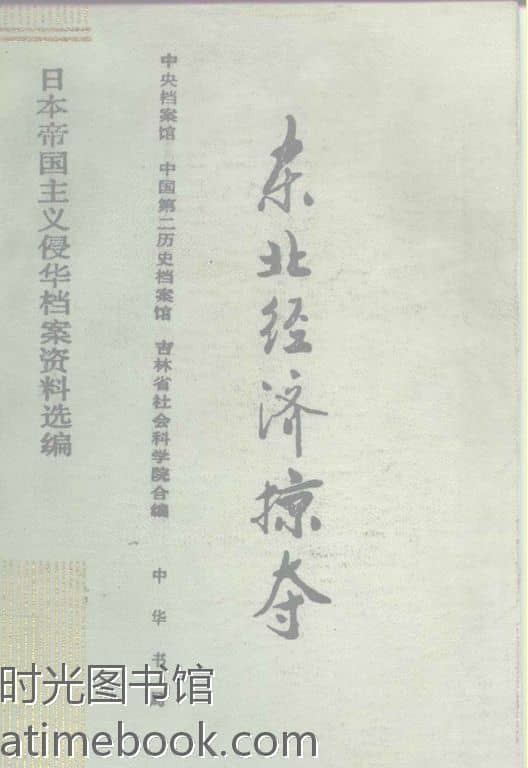 日本帝国主义侵华档案资料选编
中央档案馆 中国第二历史档案馆 吉林省社会科学院合编
中华书局
东北经济掠夺
时光图书馆
atimebook.com